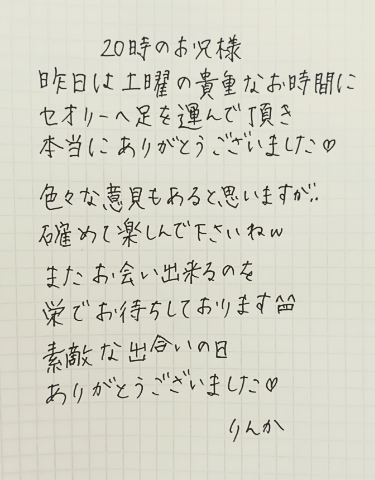 20時のお兄様
昨日は土曜の貴重なお時間に
セオリーへ足を運んで頂き
本当にありがとうございました♡
色々な意見もあると思いますが..
確めて楽しんで下さいねw
またお会い出来るのを
栄でお待ちしております
素敵な出合いの日
ありがとうございました♡
りんか